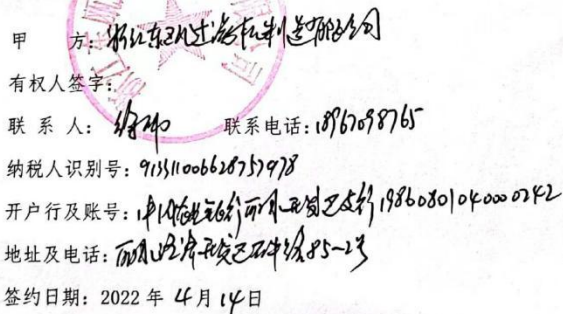 甲 方：浙江东 过滤机制造有限公司
有权人签字：
联 系 人： 联系电话：18967098765
纳税人识别号：913311006628757978
开户行及账号：中国 银行丽水 开发区支行 19860801040000242
地址及电话：丽水经济开发区石牛路85-2号
签约日期：2022 年 4月 14日